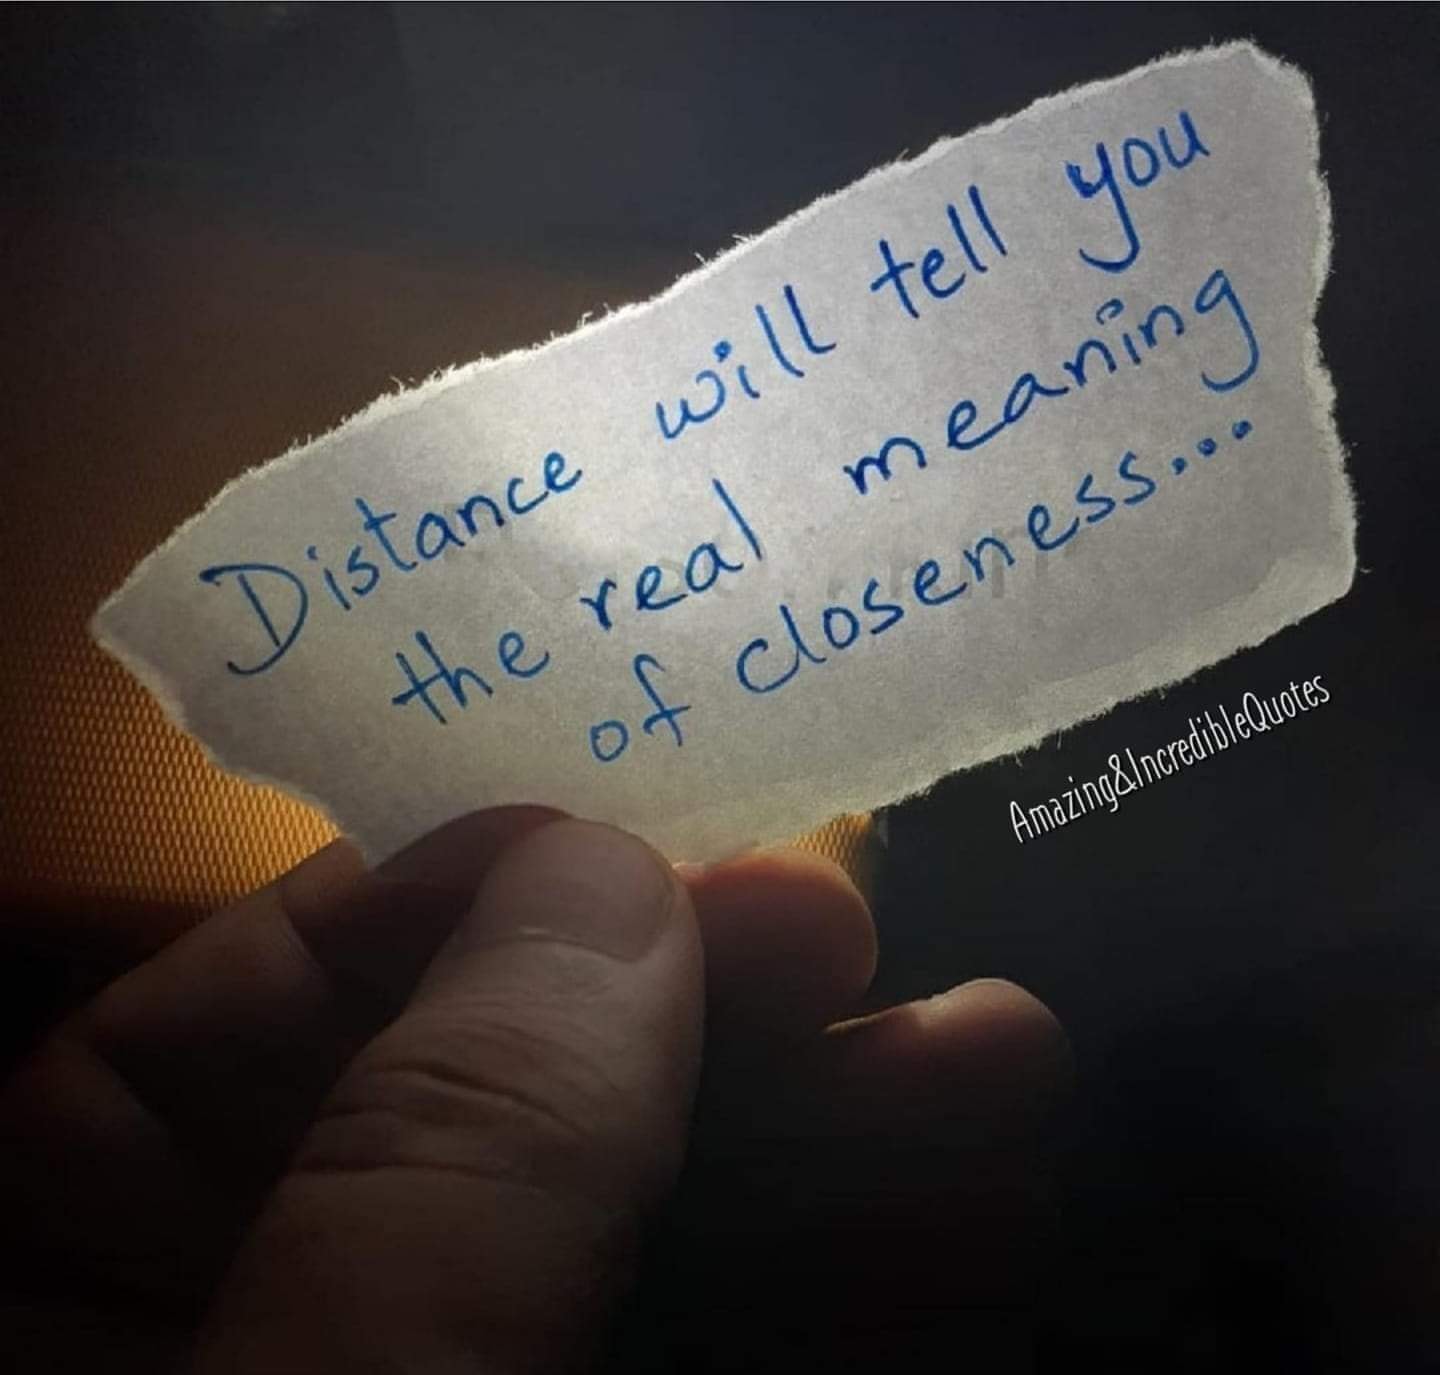 Distance will tell you
the real meaning
of closeness...
Amazing&IncredibleQuotes